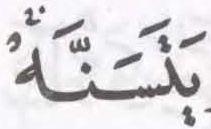 يَتَسَنَّهْۖ